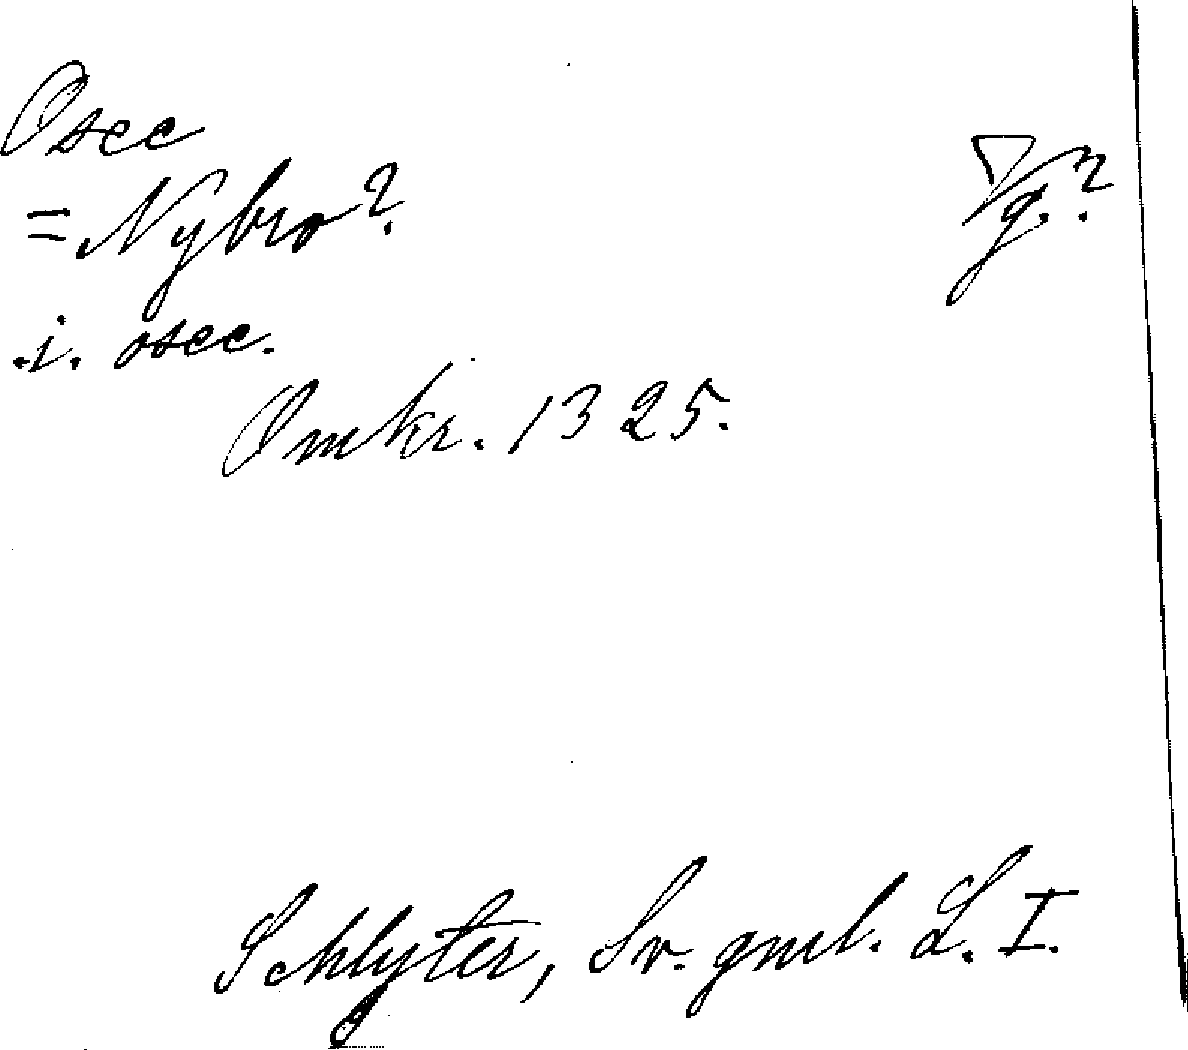 Osee
= Nybro?
.i. osee.
Omkr. 1325.
Schlyter, Sv. gml. L. I.